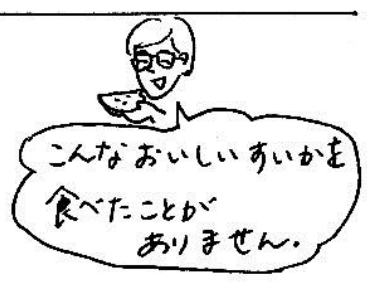 こんなおいしいすいかを
食べたことが
ありません.